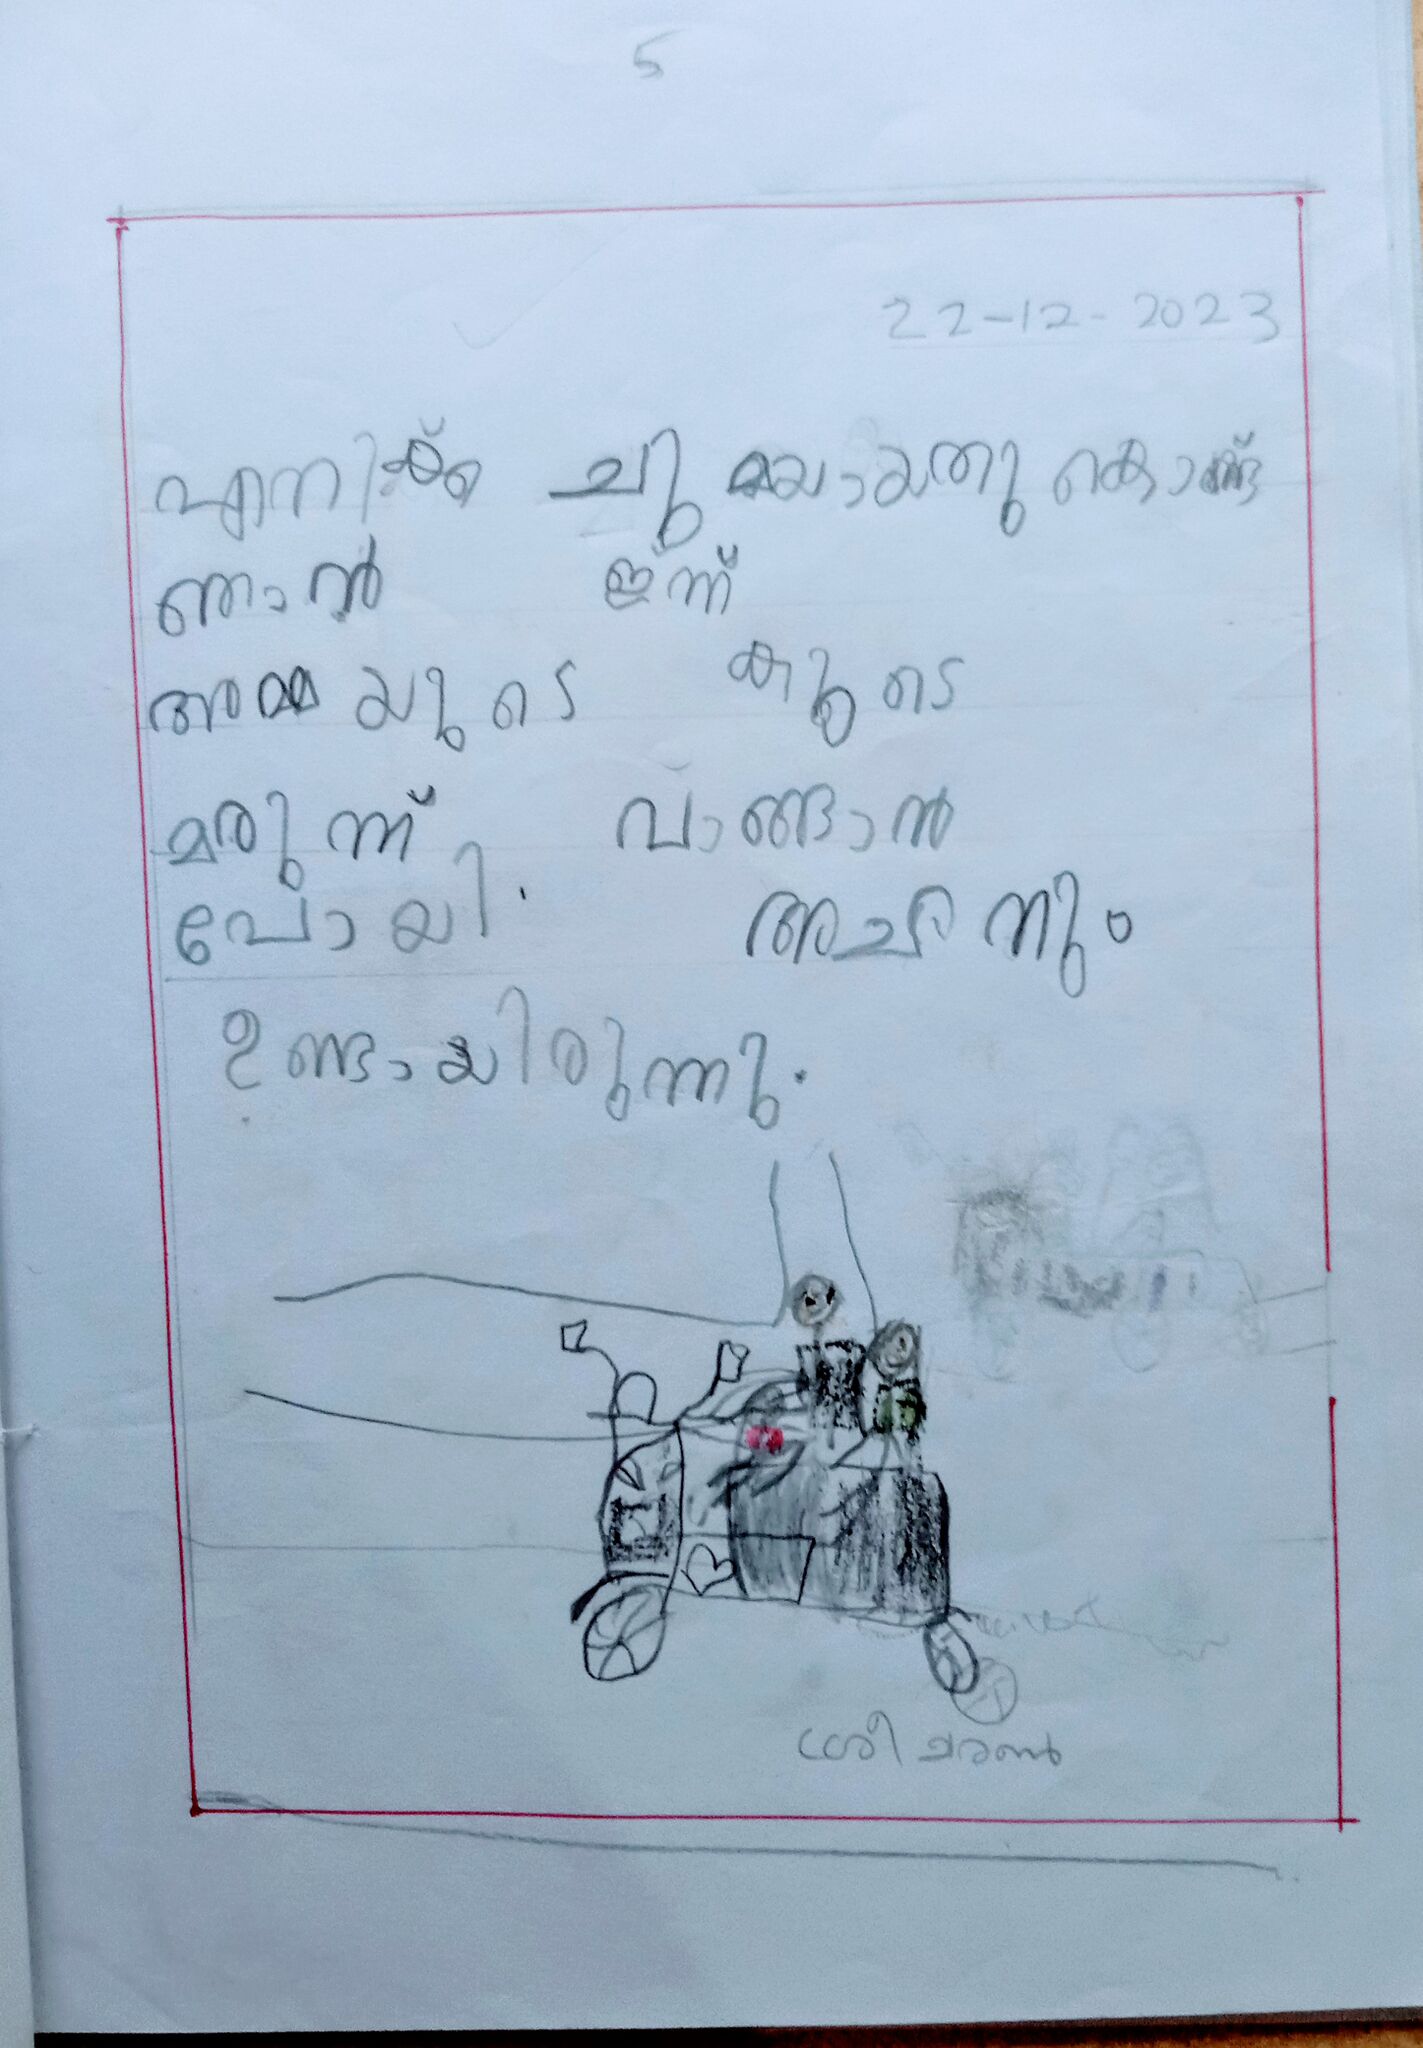 5
22-12-2023
എനിക്ക് ചുമയായതുകൊണ്ട്
ഞാൻ ഇന്ന്
അമ്മയുടെ കൂടെ
മരുന്ന് വാങ്ങാൻ
പോയി. അച്ഛനും
ഉണ്ടായിരുന്നു.
ശ്രീചരൺ